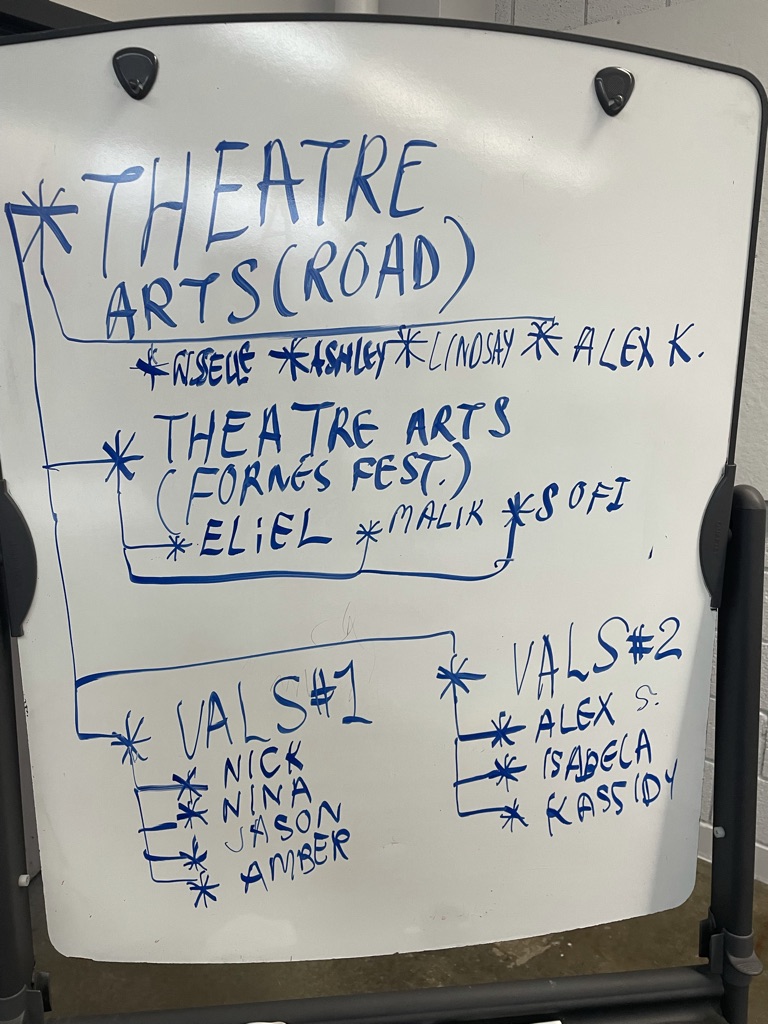 * THEATRE
ARTS (ROAD)
* * ASHLEY * LINDSAY * ALEX K.
* THEATRE ARTS
(FORNÉS FEST.)
* ELiEL * MALIK * SOFI
* VALS #1
* NICK
* NINA
* JASON
* AMBER
* VALS #2
* ALEX S.
* ISABELA
* KASSIDY